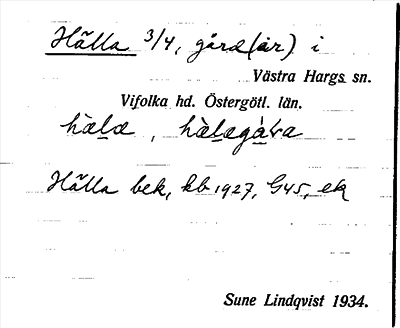 Hälla 3/4, gård(ar) i
Västra Hargs sn.
Vifolka hd. Östergötl. län.
hæ̀læ, hæ̀lægáɽa
Hälla bek, kb 1927, G45, ek
Sune Lindqvist 1934.